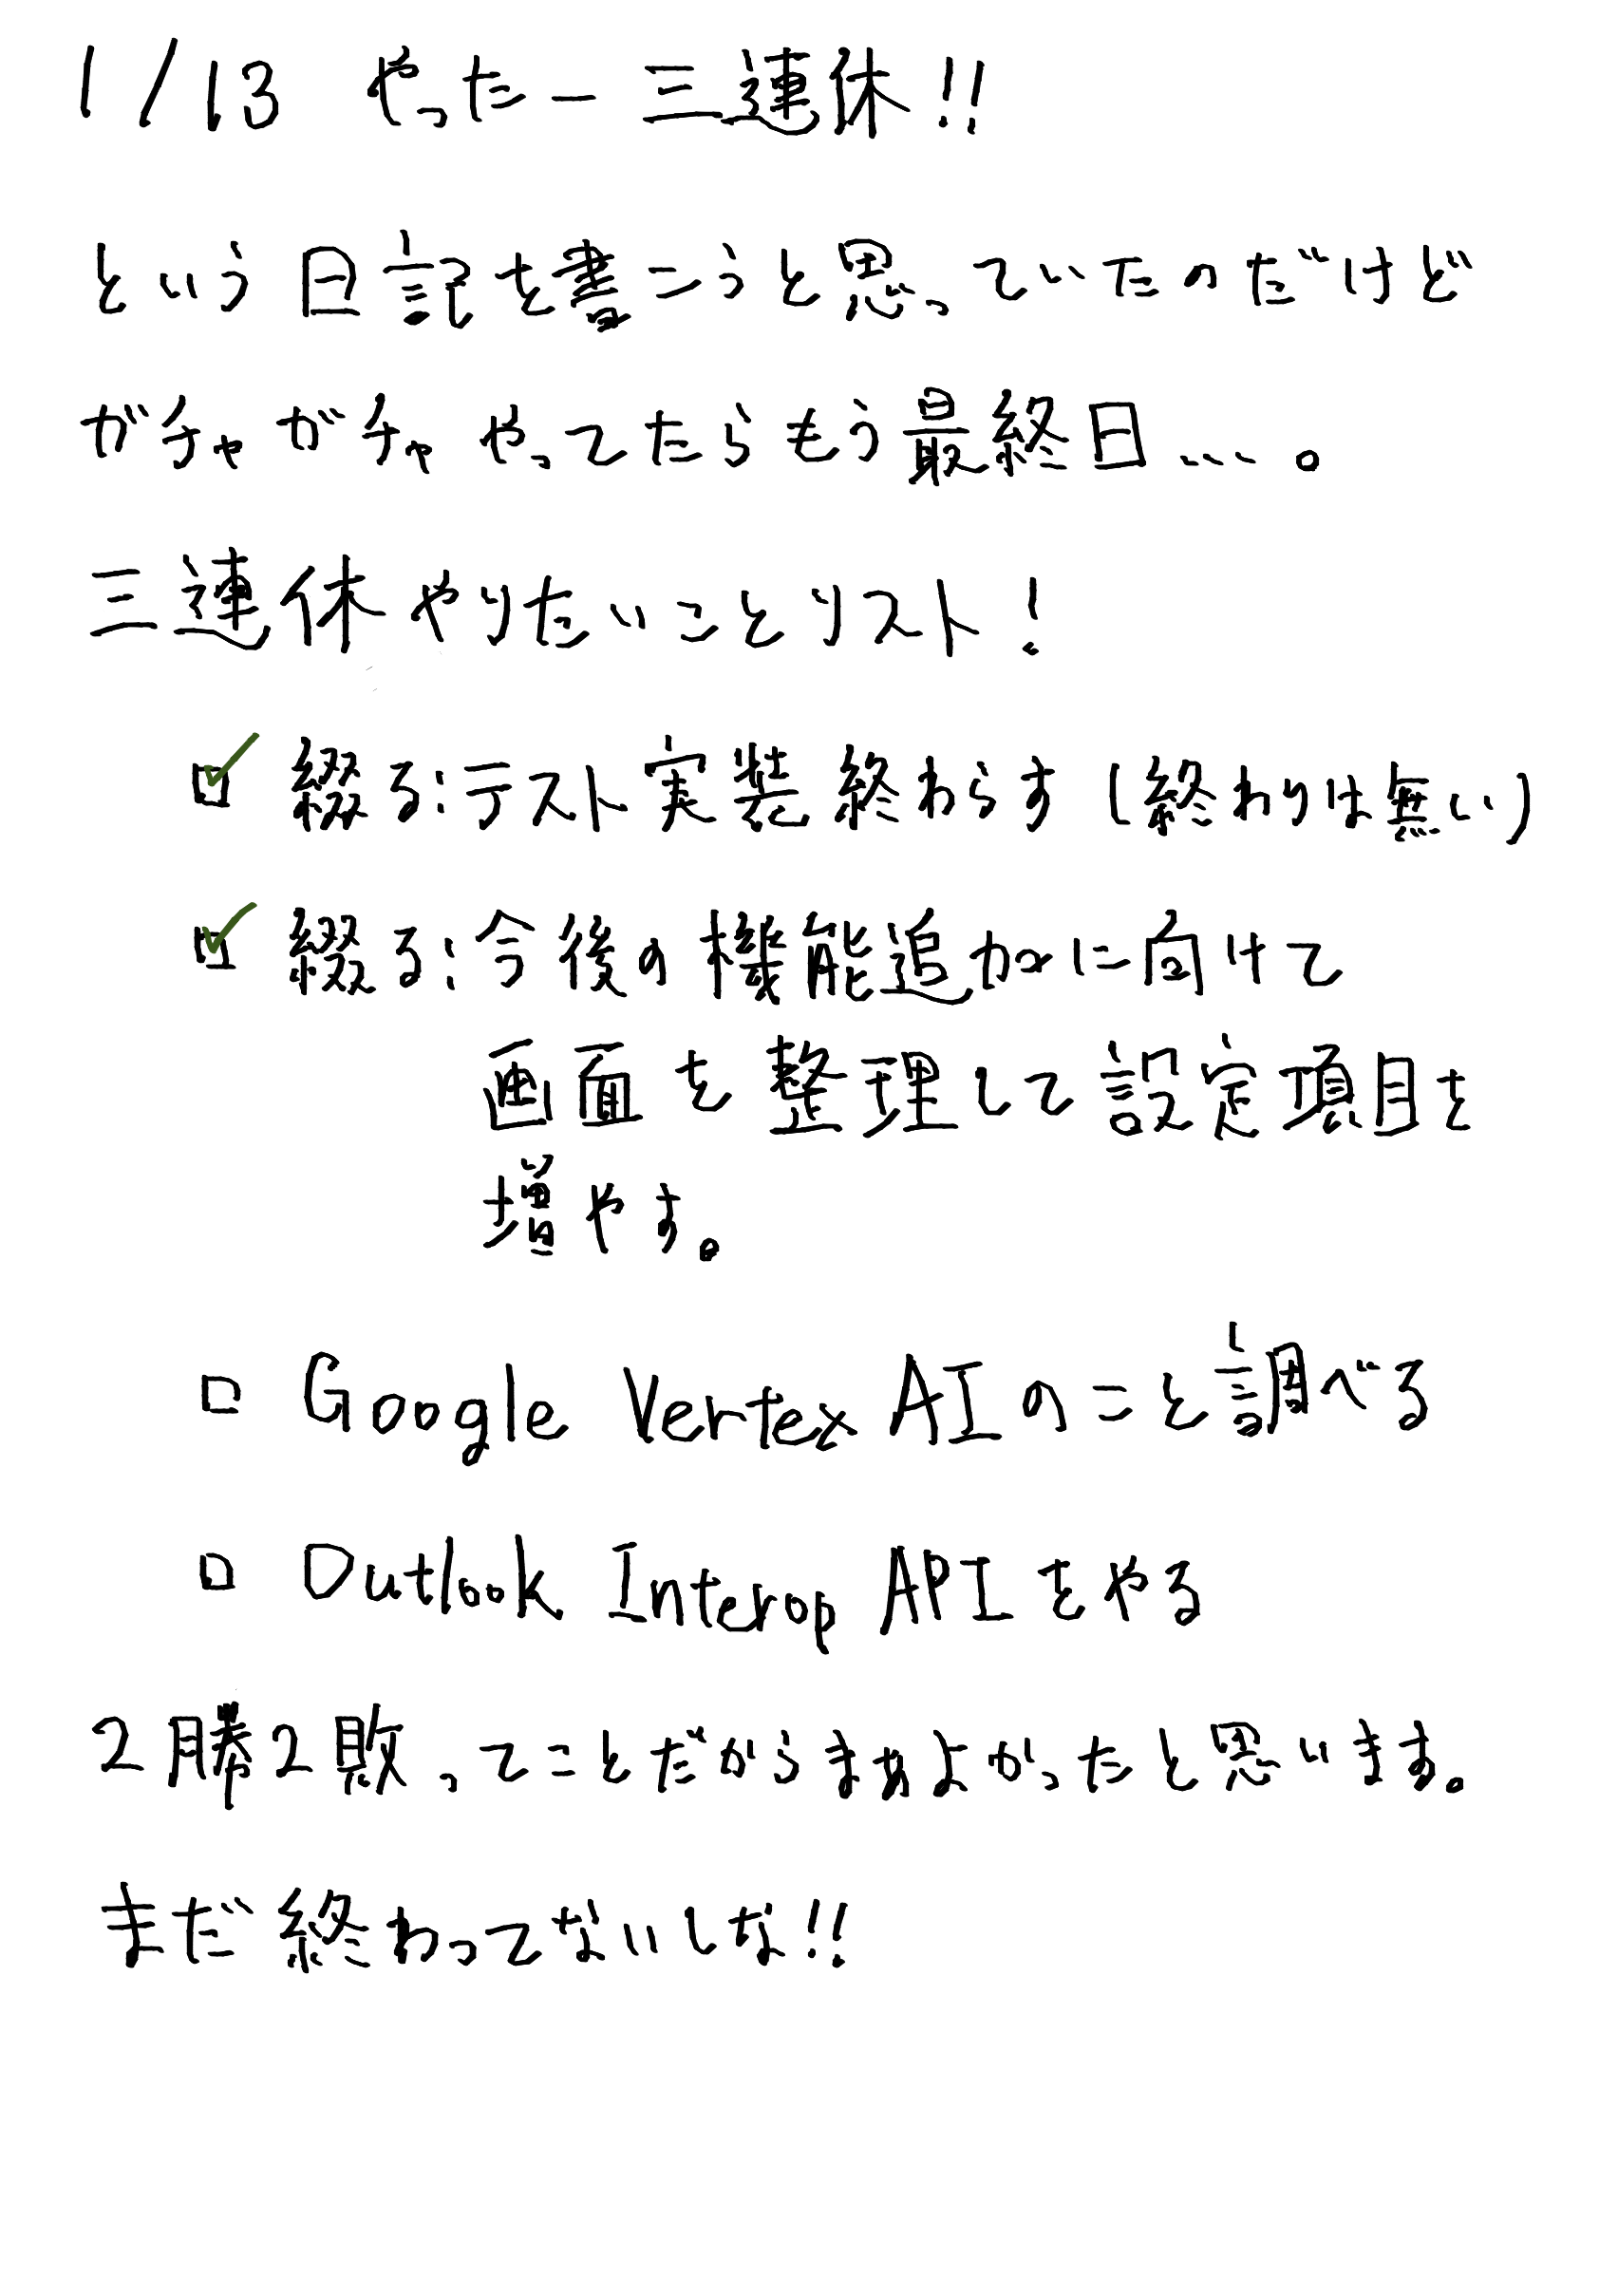 1/13 やったー三連休!!
という日記を書こうと思っていたのだけど
ガチャガチャやってたらもう最終日…。
三連休やりたいことリスト!
☑ 綴る:テスト実装終わらす(終わりは無い)
☑ 綴る:今後の機能追加に向けて
画面を整理して設定項目を
増やす。
□ Google Vertex AIのこと調べる
□ Outlook Interop APIをやる
2勝2敗ってことだからまぁよかったと思います。
まだ終わってないしな!!